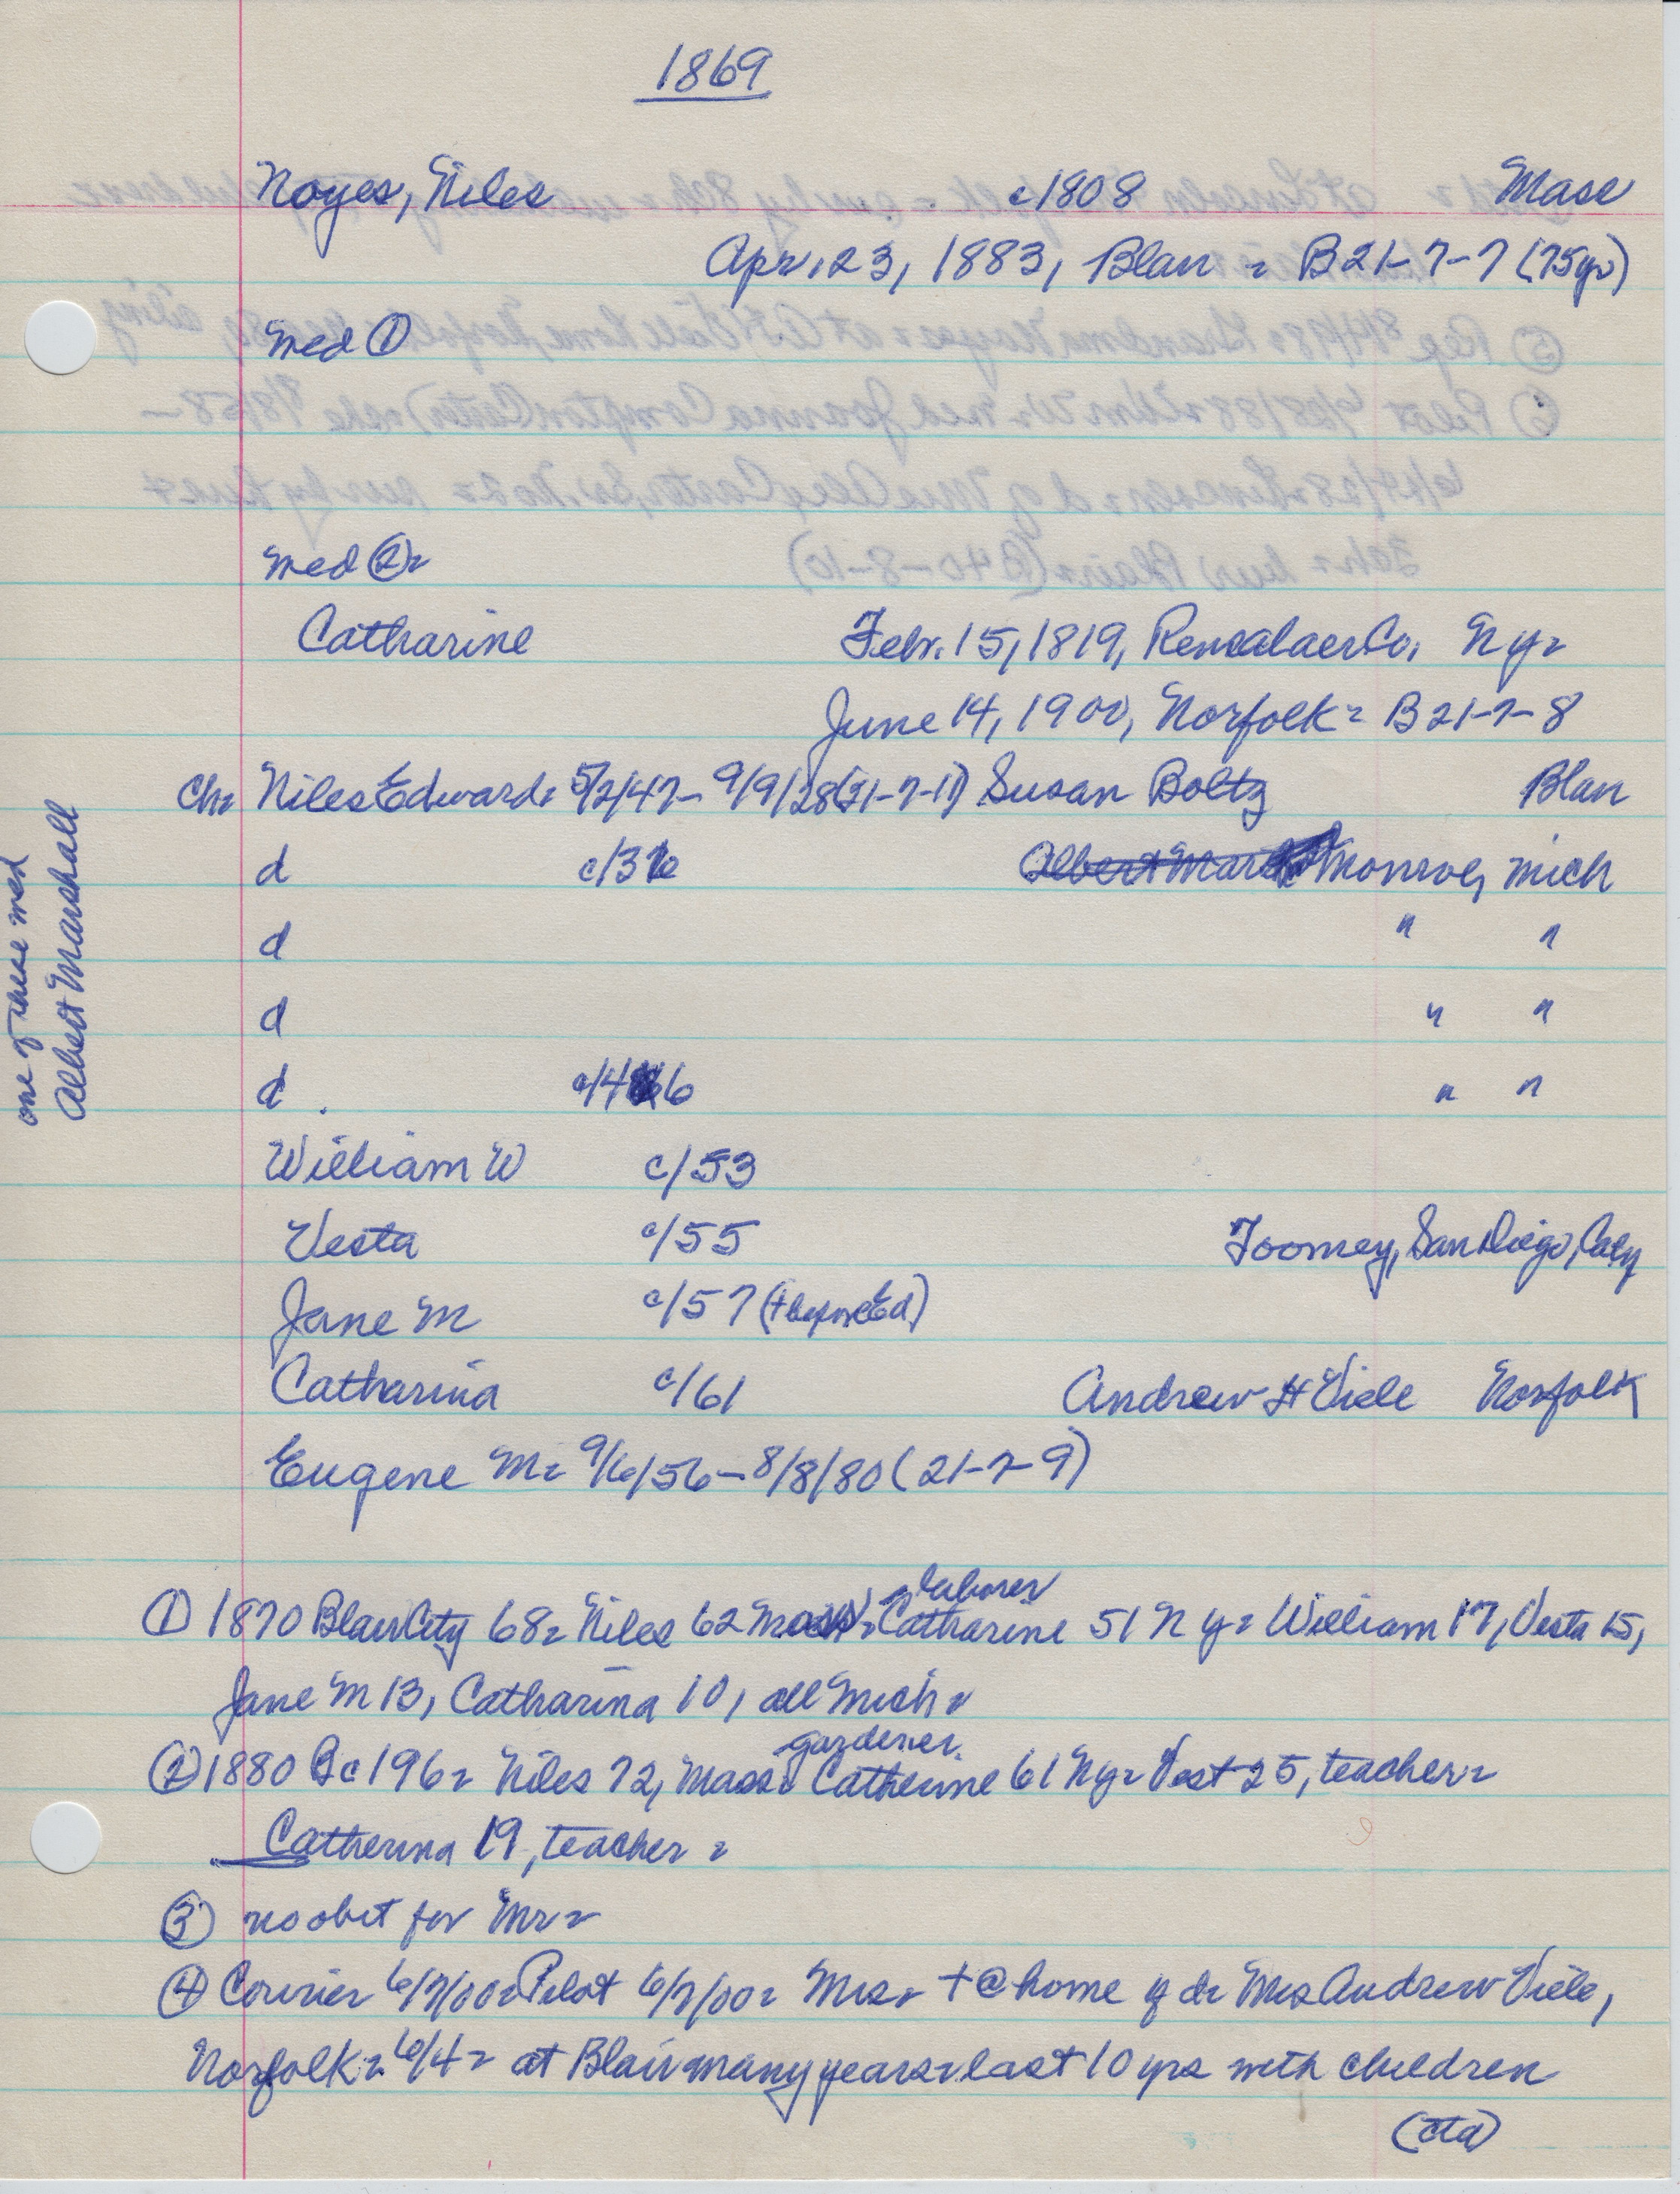 1869
Noyes, Niles c1808 Mass
Apr. 23, 1883, Blair = B21-7-7 (75yr)
med ①
med ②=
Catharine Febr. 15, 1819, Rensalaer Co. N y=
June 14, 1900, Norfolk = B21-7-8
Ch= Niles Edward= 5/2/47- 9/9/28(21-7-11) Susan Boltz Blair
d c/36 Albert Marsh Monroe, Mich
d " "
d " "
d c/46 " "
one of these med
Albert Marshall
William W c/53
Vesta c/55 Toomey, San Diego, Caly
Jane M c/57 (+before Ed)
Catharina c/61 Andrew H Viele Norfolk
Eugene M= 9/6/56-8/8/80 (21-7-9)
laborer
① 1870 Blair City 68= Niles 62 Mass= Catharine 51 N y= William 17, Vesta 15,
Jane M 13, Catharina 10, all Mich=
gardener
② 1880 Bc 196= Niles 72, Mass= Catherine 61 Ny= Vest 25, teacher=
Catherina 19, teacher =
③ no obit for Mr=
④ Courier 6/7/00= Pilot 6/7/00= Mrs= + @ home of d= Mrs Andrew Viele,
Norfolk= 6/4= at Blair many years= last 10 yrs with children
(ctd)